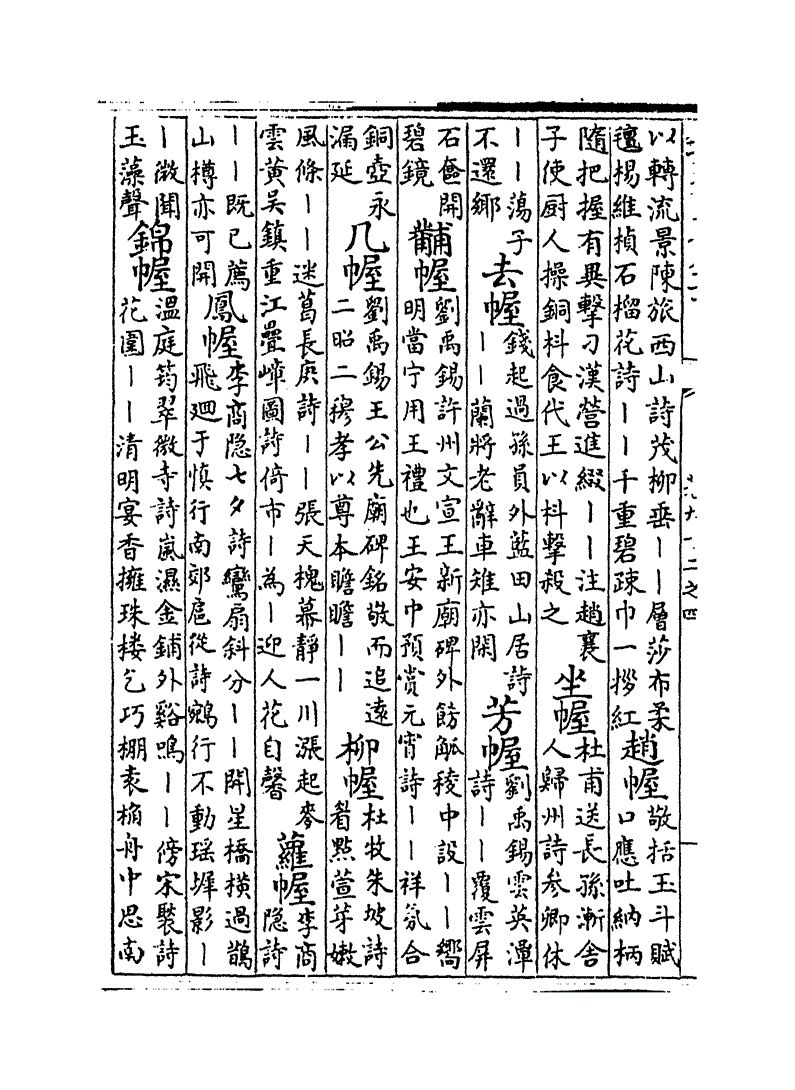 以轉流景陳旅西山詩茂柳垂丨丨層莎布柔
氊楊維楨石榴花詩丨丨千重碧疎巾一搦紅
趙幄
敬括玉斗賦
口應吐納柄
隨把握有異擊刁漢營進綴丨丨注趙襄
子使厨人操銅枓食代王以枓擊殺之
坐幄
杜甫送長孫漸舍
人歸州詩參卿休
丨丨蕩子
不還鄉
去幄
錢起過孫員外藍田山居詩
丨丨蘭將老辭車雉亦閑
芳幄
劉禹錫雲英潭
詩丨丨覆雲屏
石奩開
碧鏡
黼幄
劉禹錫許州文宣王新廟碑外飭觚稜中設丨丨嚮
明當宁用王禮也王安中預賞元宵詩丨丨祥氛合
銅壺永
漏延
几幄
劉禹錫王公先廟碑銘敬而追遠
二昭二穆孝以尊本瞻瞻丨丨
柳幄
杜牧朱坡詩
眉點萱芽嫩
風條丨丨迷葛長庚詩丨丨張天槐幕靜一川漲起麥
雲黄吴鎮重江疊嶂圖詩倚市丨為丨迎人花自馨
蘿幄
李商
隐詩
丨丨既已薦
山樽亦可開
鳳幄
李商隐七夕詩鸞扇斜分丨丨開星橋横過鵲
飛廻于慎行南郊扈從詩鵷行不動瑶墀影丨
丨微聞
玉藻聲
錦幄
溫庭筠翠微寺詩嵐濕金鋪外谿鳴丨丨傍宋褧詩
花圍丨丨清明宴香擁珠楼乞巧棚袁桷舟中思南